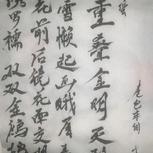 重叠金明灭
雪懒起画蛾眉
花前后镜花面交
绣罗襦双双金鹧